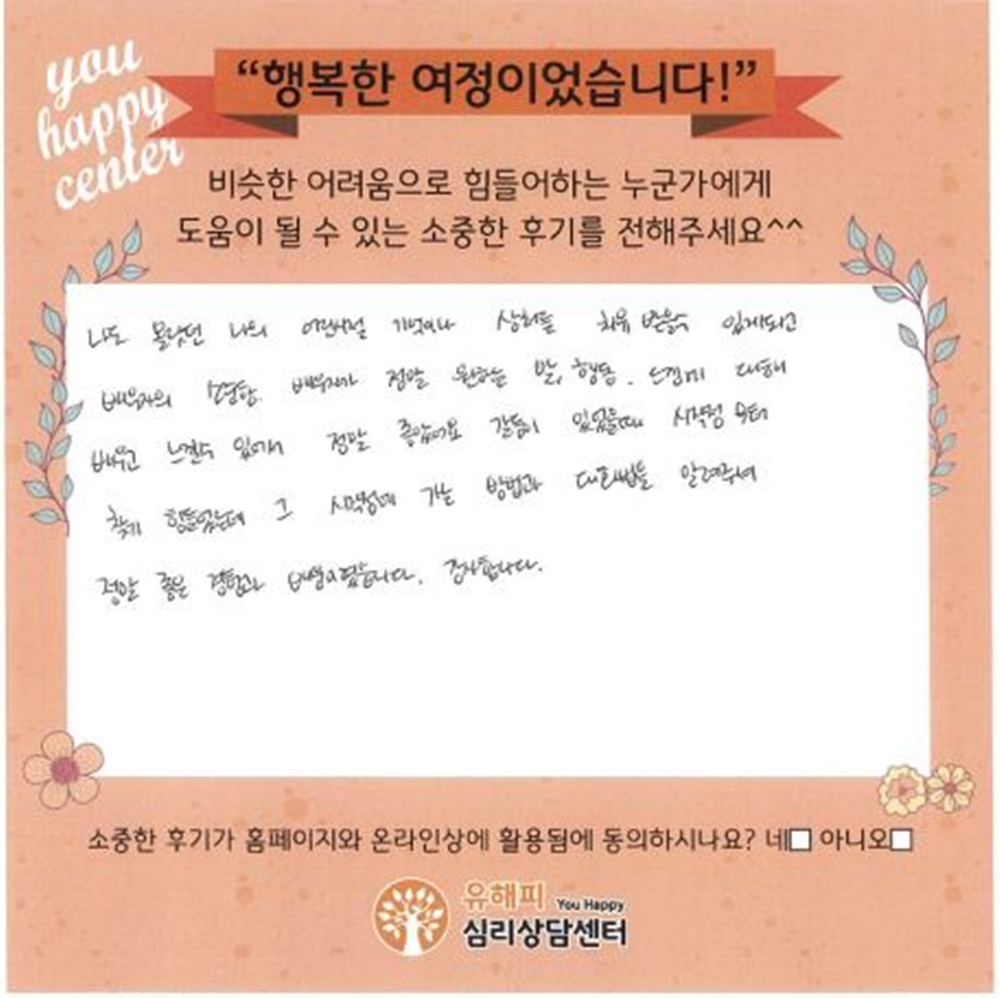 you
happy
center
“행복한 여정이었습니다!”
비슷한 어려움으로 힘들어하는 누군가에게
도움이 될 수 있는 소중한 후기를 전해주세요^^
나도 몰랐던 나의 어린시절 기억이나 상처를 치유 받을수 있게되고
배우자의 배우자가 정말 원하는 말, 행동, 느낌에 대해
배우고 느낄수 있어서 정말 좋았어요 갈등이 있었을때 시작점 부터
찾기 힘들었는데 그 시작점에 가는 방법과 대화법을 알려주셔
정말 좋은 경험과 배움이였습니다. 감사합니다.
소중한 후기가 홈페이지와 온라인상에 활용됨에 동의하시나요? 네□ 아니오□
유해피 You Happy
심리상담센터